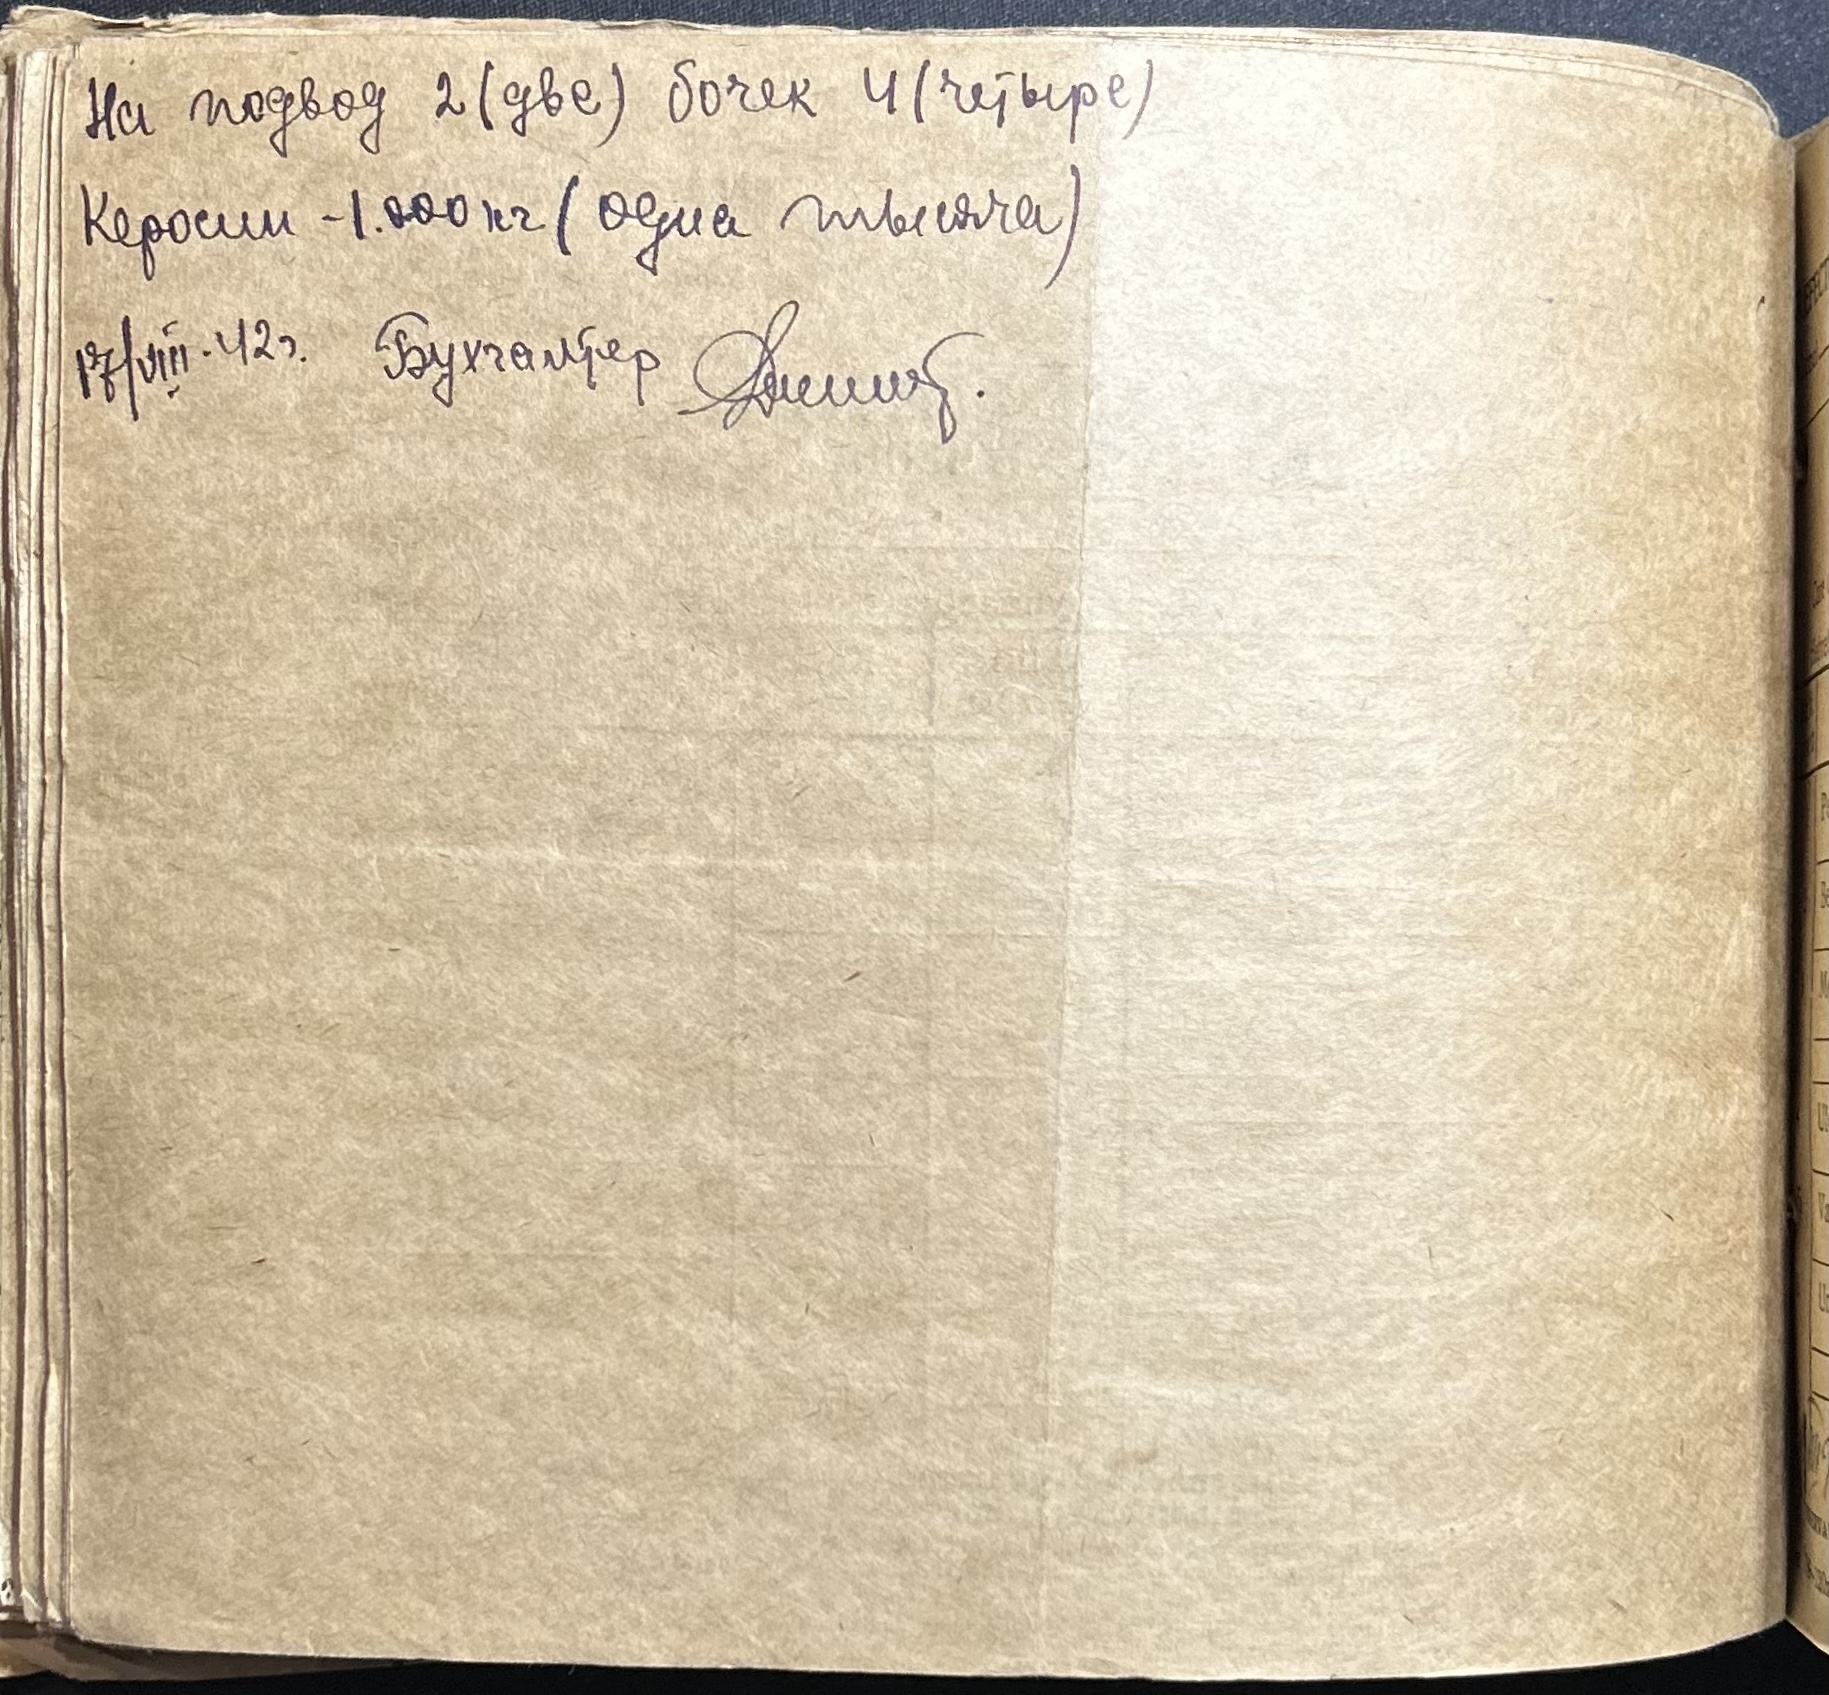 На подвод 2 (две) бочек 4 (четыре)
Керосин - 1.000 кг (одна тысяча)
17/VIII-42г. Бухгалтер